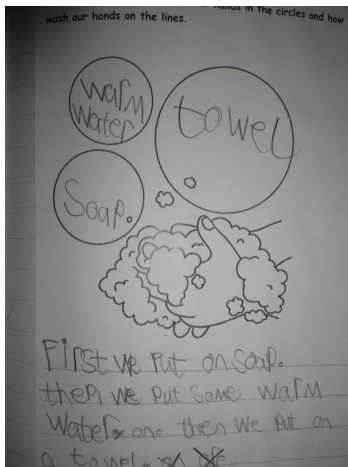 hands in the circles and how
wash our hands on the lines.
warm
water
towel
Soap.
First we put on soap.
then we put some warm
water one then we put on
a towel.